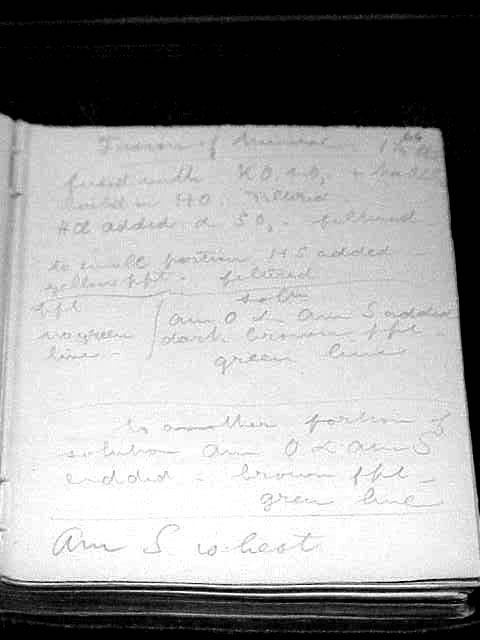 Fusion of
fused with K O, + 
boiled in HO. Filtered
Hcl added & SO2 - filtered
to small portion HS added -
yellow ppt - filtered
ppt
no green
line -
soltn
am O & Am S added
dark brown ppt -
green line
to another portion of
solution am O & am S
added - brown ppt -
green line
Am S w. heat